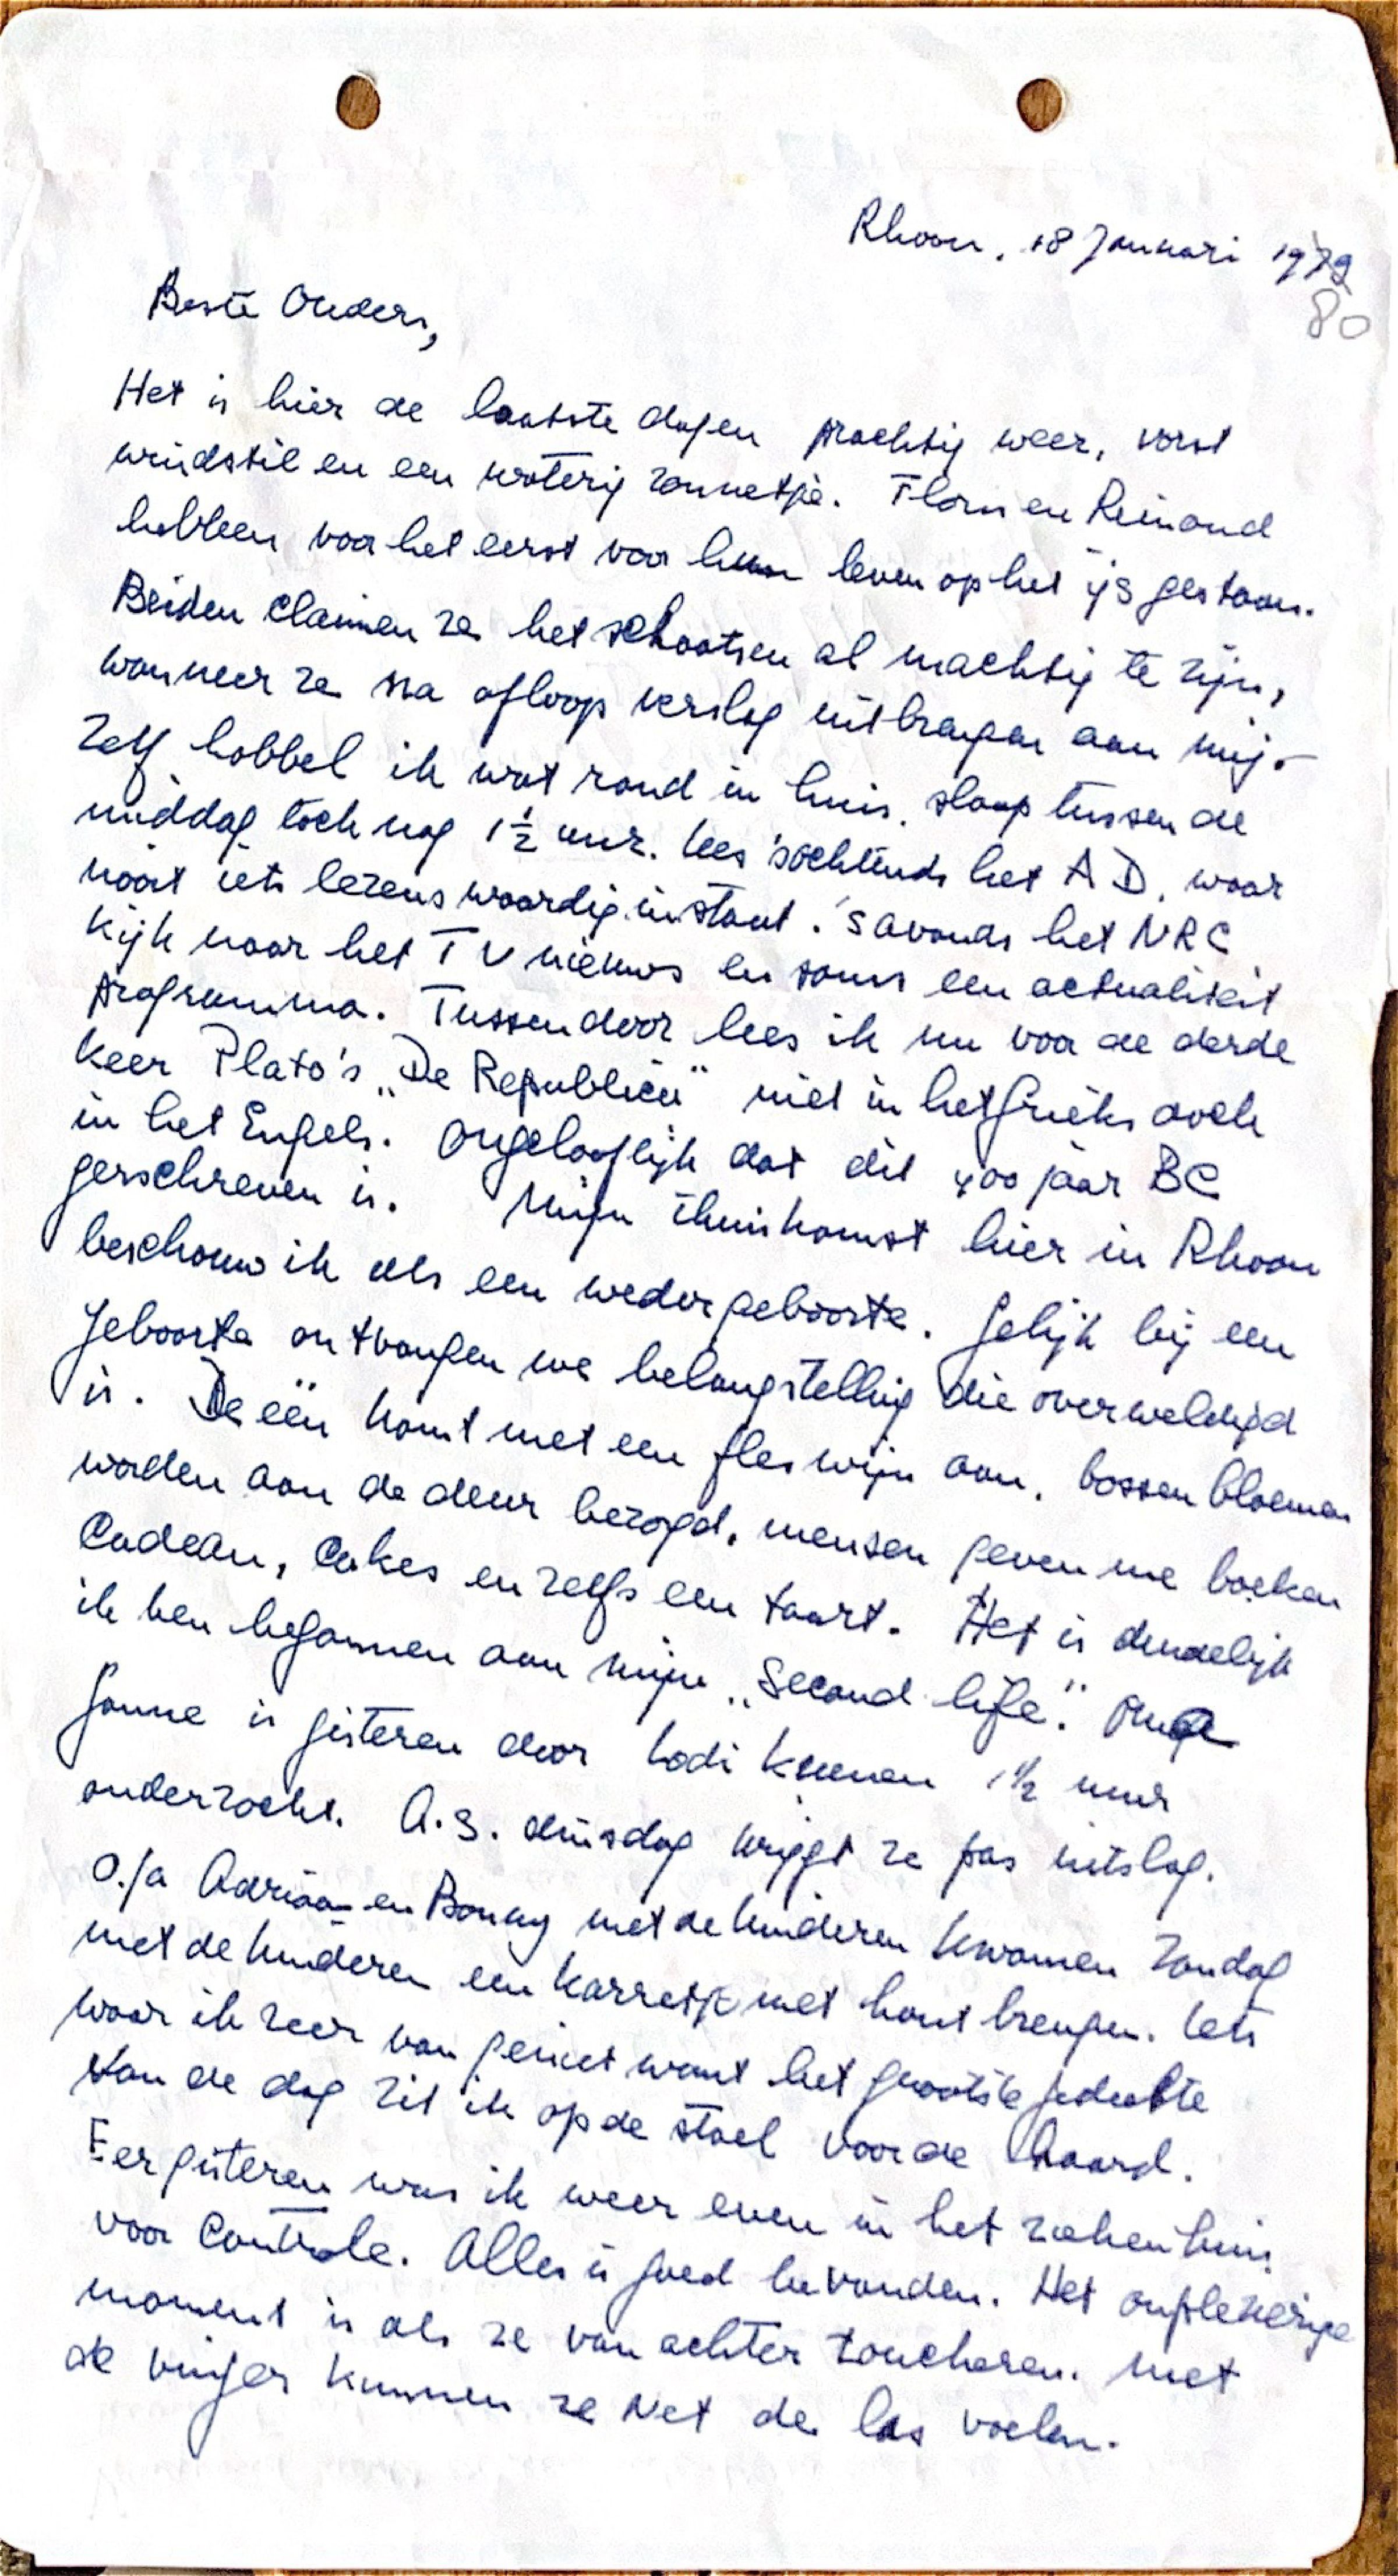 Rhoon, 18 Januari 1979
80
Beste Ouders,
Het is hier de laatste dagen prachtig weer, vorst
windstil en een waterig zonnetje. Floris en Reinoud
hebben voor het eerst voor hun leven op het ijs gestaan.
Beiden claimen ze het schaatsen al machtig te zijn,
wanneer ze na afloop verslag uitbrengen aan mij.
Zelf hobbel ik wat rond in huis, slaap tussen de
middag toch nog 1½ uur. Lees 'sochtends het AD, waar
nooit iets lezenswaardig instaat. 's avonds het NRC
Kijk naar het TV nieuws en soms een actualiteit
programma. Tussendoor lees ik nu voor de derde
keer Plato's „De Republiek" niet in het Grieks doch
in het Engels. Ongelooflijk dat dit 400 jaar BC
geschreven is. Mijn thuiskomst hier in Rhoon
beschouw ik als een wedergeboorte. Gelijk bij een
geboorte ontvangen we belangstelling die overweldigd
is. De één komt met een fles wijn aan, bossen bloemen
worden aan de deur bezorgd, mensen geven me boeken
Cadeau, Cakes en zelfs een taart. Het is duidelijk
ik ben begonnen aan mijn „Second life".
is gisteren door 1½ uur
onderzocht. A.s. dinsdag krijgt ze pas uitslag.
O.ja Adriaan en Bonny met de kinderen kwamen Zondag
met de kinderen een karretje met hout brengen. Iets
waar ik zeer van geniet want het grootste gedeelte
van de dag zit ik op de stoel voor de haard.
Eergisteren was ik weer even in het ziekenhuis
voor Controle. Alles is goed bevonden. Het onplezierige
moment is als ze van achter toucheren. Met
de vinger kunnen ze Net de las voelen.